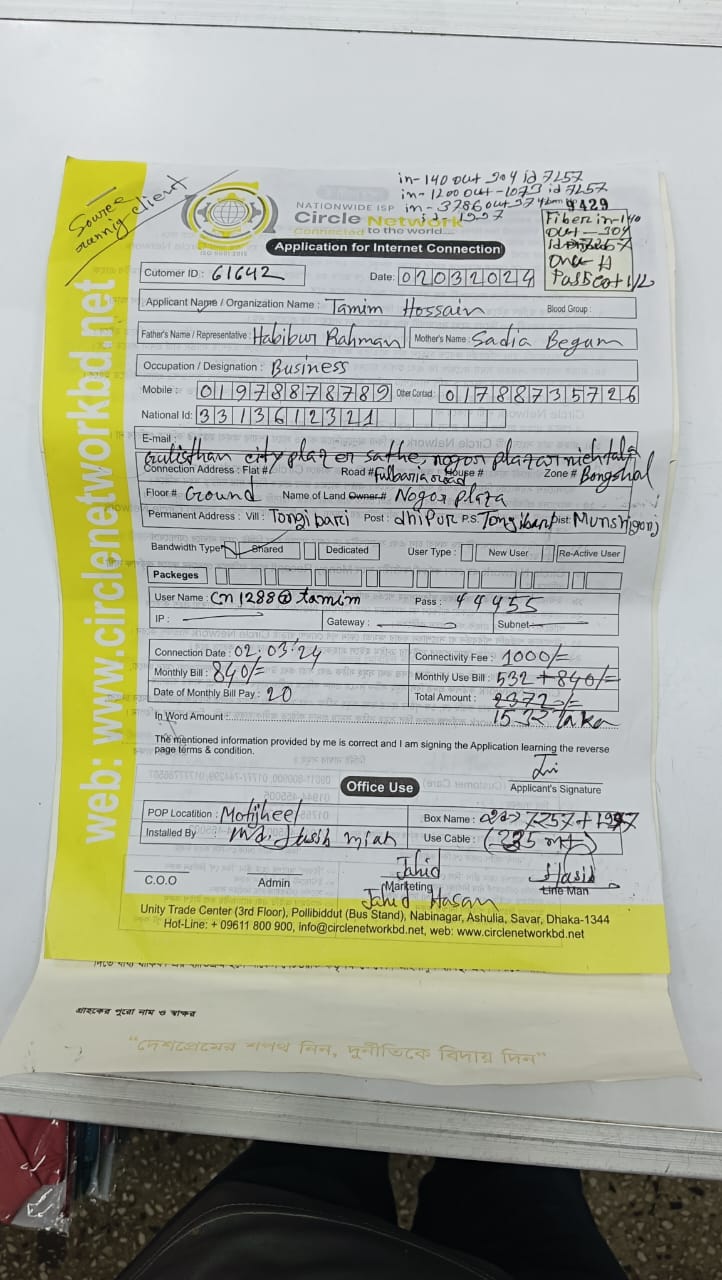 Source
runnig client
in-140 out 304 id 7257
in-1200 out-1073 id 7257
in-3786 out
9429
NATIONWIDE ISP
Circle Network
Connected to the world...
ISO 9001:2015
Fiber in-140
out-304
id-7257
Onu-A
Application for Internet Connection
Cutomer ID : 61642
Date: 02032024
Applicant Name / Organization Name : Tamim Hossain
Blood Group :
Father's Name / Representative : Habibur Rahman
Mother's Name : Sadia Begum
Occupation / Designation : Business
Mobile : 01978878789 Other Contact : 01788735726
National Id: 3313612321
E-mail :
Gulisthan city plaza er sathe, nogor plazar nichtala
Connection Address : Flat # Road # Fulbaria road House # Zone # Bongshal
Floor # Ground Name of Land Owner # Nogor plaza
Permanent Address : Vill : Tongibari Post : dhipur P.S: Tongibari Dist: Munshigonj
Bandwidth Type Shared Dedicated User Type : New User Re-Active User
Packeges
User Name : cn1288@tamim Pass : 44455
IP : Gateway : Subnet
Connection Date : 02.03.24 Connectivity Fee : 1000/=
Monthly Bill : 840/= Monthly Use Bill : 532 + 840/=
Date of Monthly Bill Pay : 20 Total Amount : 2372/=
In Word Amount : 1532 taka
The mentioned information provided by me is correct and I am signing the Application learning the reverse
page terms & condition.
Applicant's Signature
Office Use
POP Locatition : Motijheel Box Name : 7257+1997
Installed By Md. Hasib miah Use Cable : (235 mt)
Jahid Hasib
C.O.O Admin Marketing Line Man
Jahid Hasan
Unity Trade Center (3rd Floor), Pollibiddut (Bus Stand), Nabinagar, Ashulia, Savar, Dhaka-1344
Hot-Line: + 09611 800 900, info@circlenetworkbd.net, web: www.circlenetworkbd.net
web: www.circlenetworkbd.net
গ্রাহকের পুরো নাম ও স্বাক্ষর
“দেশপ্রেমের শপথ নিন, দুর্নীতিকে বিদায় দিন”